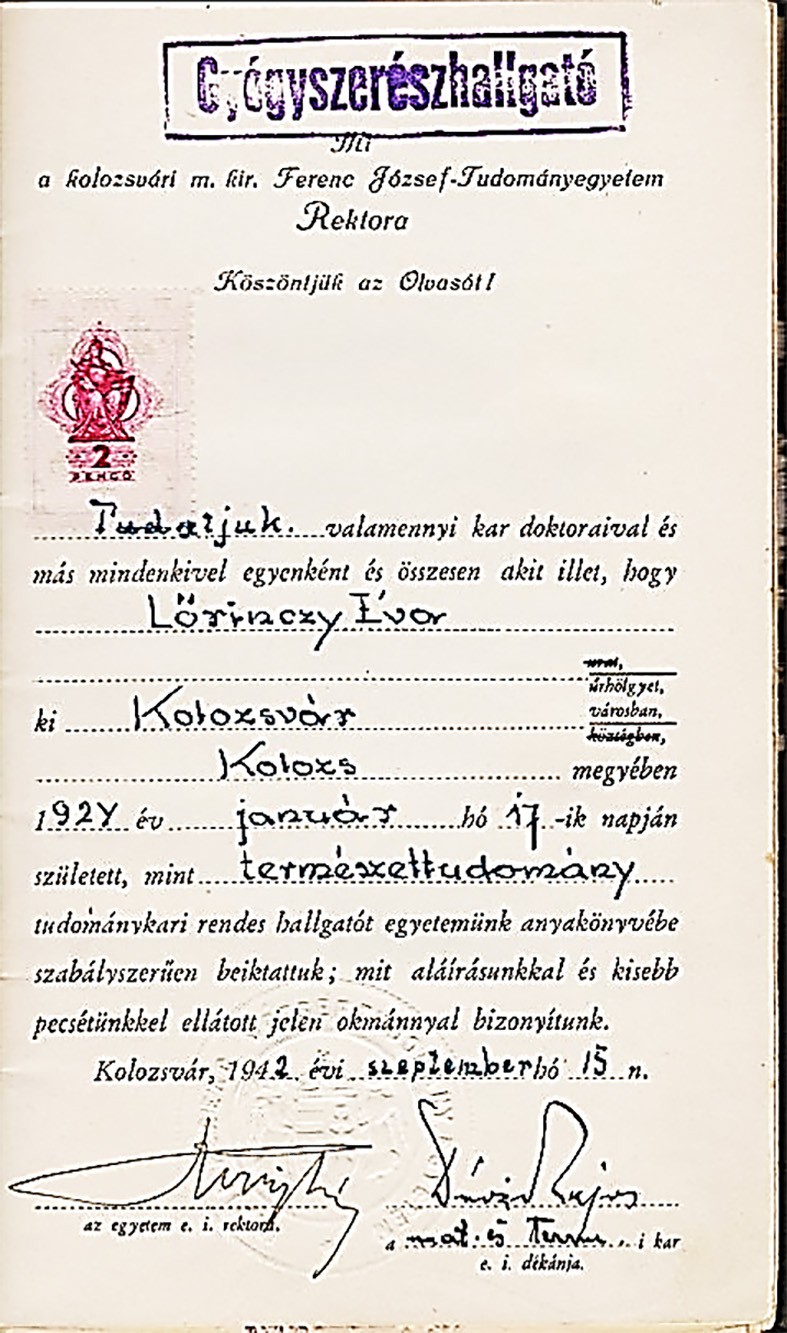 Gyógyszerészhallgató
Mi
a kolozsvári m. kir. Ferenc József-Tudományegyetem
Rektora
Köszöntjük az Olvasót!
2
PENGŐ
Tudatjuk. valamennyi kar doktoraival és
más mindenkivel egyenként és összesen akit illet, hogy
Lőrinczy Évor
urat,
úrhölgyet,
ki Kolozsvár városban,
községben,
Kolozs megyében
1924 év január hó 17-ik napján
született, mint természettudomány
tudománykari rendes hallgatót egyetemünk anyakönyvébe
szabályszerűen beiktattuk; mit aláírásunkkal és kisebb
pecsétünkkel ellátott jelen okmánnyal bizonyítunk.
Kolozsvár, 1942. évi szeptember hó 15 n.
az egyetem e. i. rektora.
a mat. és Term. i kar
e. i. dékánja.